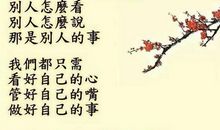 別人怎麼看
別人怎麼說
那是別人的事
我們都只需
看好自己的心
管好自己的嘴
做好自己的事